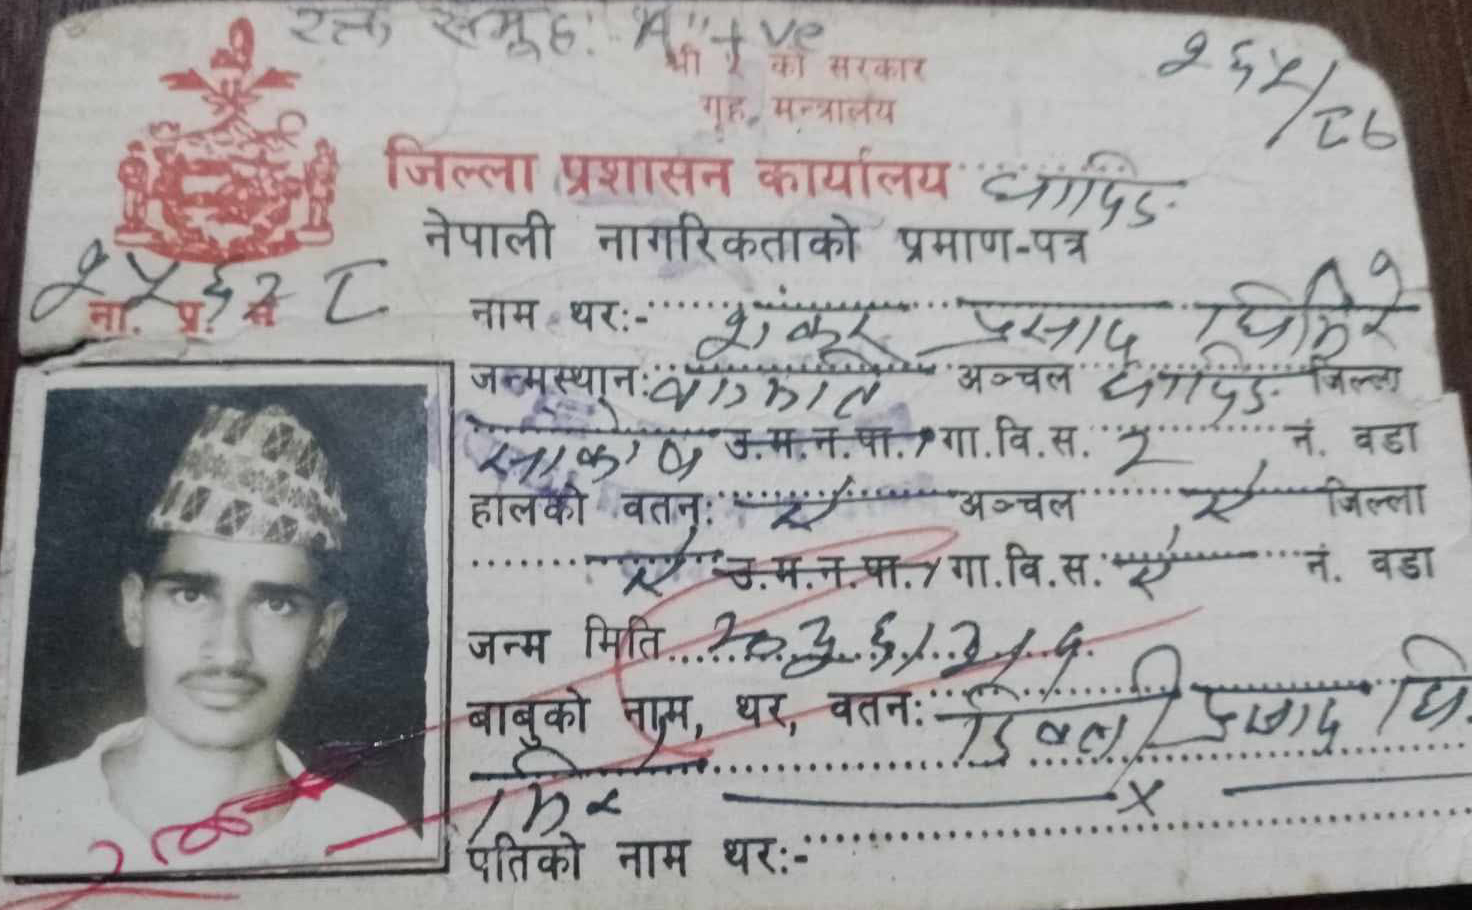 रक्त समूह: "A" +ve
श्री ५ को सरकार
गृह मन्त्रालय
२६५/८७
जिल्ला प्रशासन कार्यालय धादिङ
नेपाली नागरिकताको प्रमाण-पत्र
ना. प्र. नं २५६२८
नाम थर:- शंकर प्रसाद घिमिरे
जन्मस्थान: वागमति अञ्चल धादिङ जिल्ला
उ.म.न.पा./गा.वि.स. २ नं. वडा
हालको वतन: ऐ अञ्चल ऐ जिल्ला
ऐ उ.म.न.पा./गा.वि.स. ऐ नं. वडा
जन्म मिति
बाबुको नाम, थर, वतन: प्रसाद घि
मिरे x
पतिको नाम थर:-